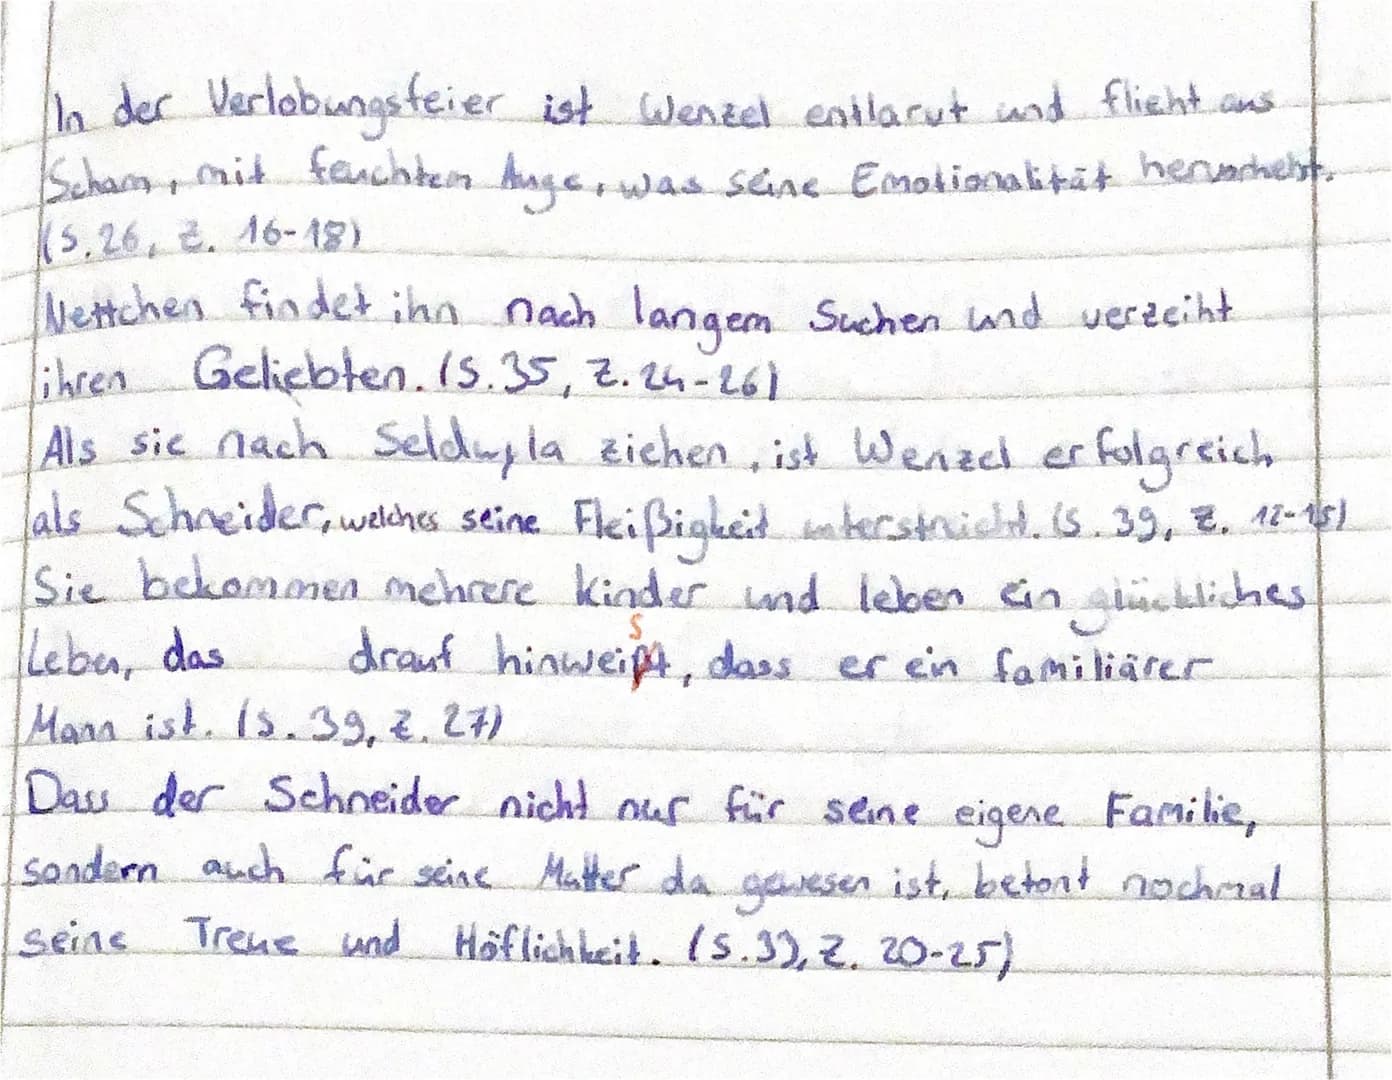 In der Verlobungsfeier ist Wenzel entlarvt und flieht aus
Scham, mit feuchtem Auge, was seine Emotionalität hervorhebt.
(S. 26, Z. 16-18)
Nettchen findet ihn nach langem Suchen und verzeiht
ihren Geliebten. (S. 35, Z. 24-26)
Als sie nach Seldwyla ziehen, ist Wenzel erfolgreich
als Schneider, welches seine Fleißigkeit unterstricht. (S. 39, Z. 12-15)
Sie bekommen mehrere Kinder und leben ein glückliches
s
Leben, das drauf hinweißt, dass er ein familiärer
Mann ist. (S. 39, Z. 27)
Dass der Schneider nicht nur für seine eigene Familie,
sondern auch für seine Mutter da gewesen ist, betont nochmal
seine Treue und Höflichkeit. (S. Z. 20-25)